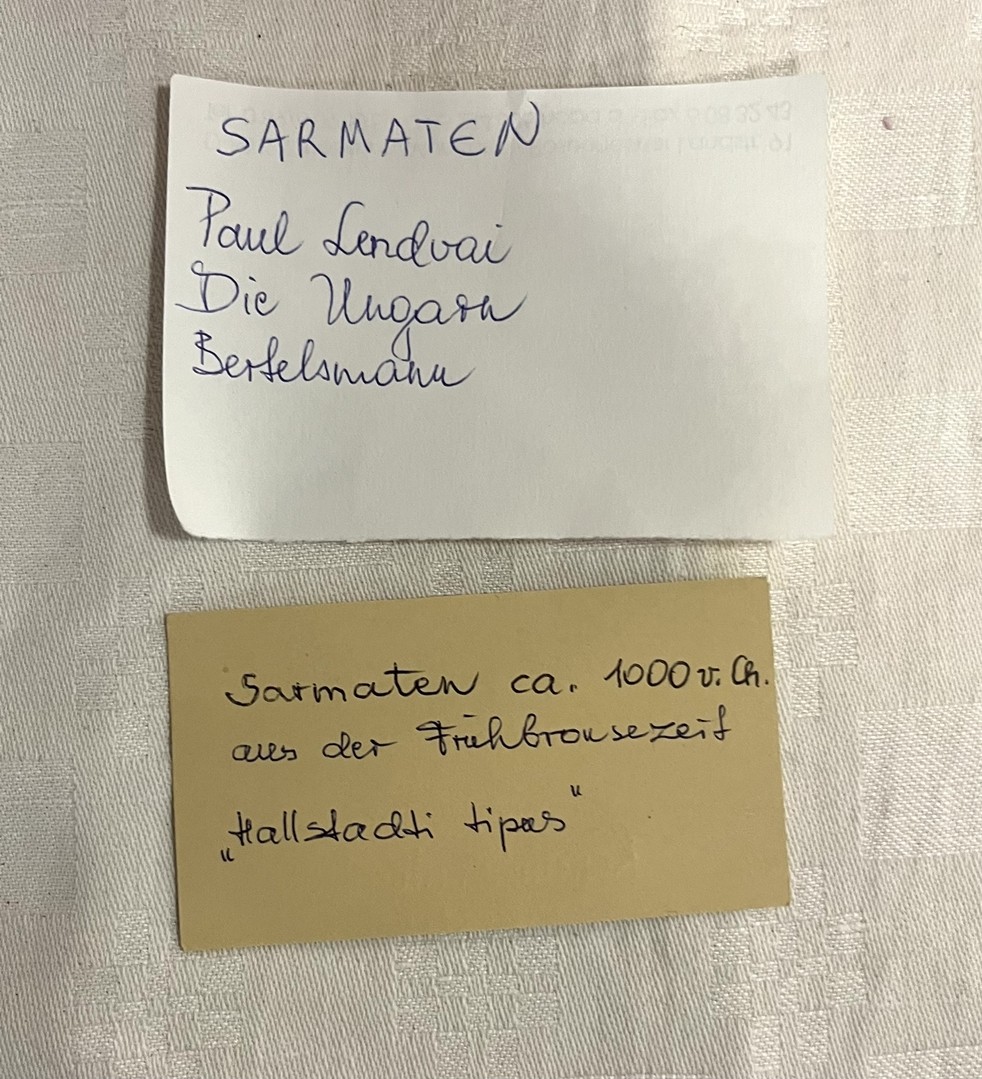 SARMATEN
Paul Lendvai
Die Ungarn
Bertelsmann
Sarmaten ca. 1000 v. Ch.
aus der Frühbronsezeit
„Hallstadti tipus"